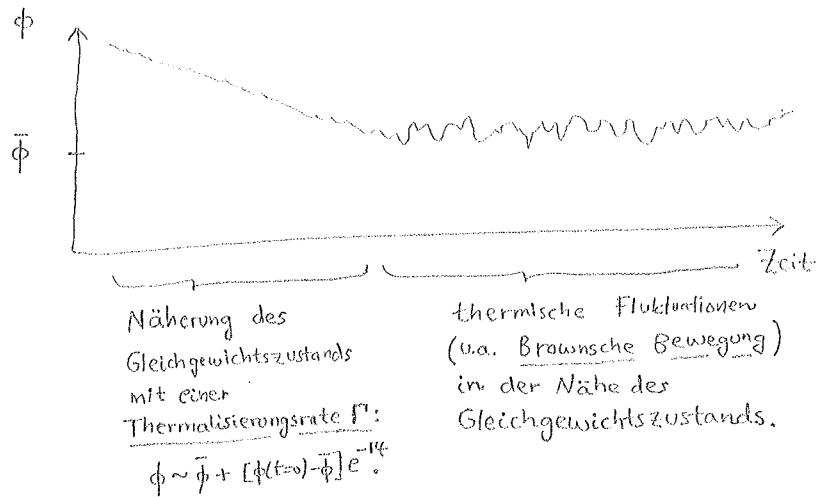 ϕ
ϕ̄
Zeit
Näherung des
Gleichgewichtszustands
mit einer
Thermalisierungsrate Γ:
ϕ ~ ϕ̄ + [ϕ(t=0)-ϕ̄] e^{-Γt}.
thermische Fluktuationen
(u.a. Brownsche Bewegung)
in der Nähe des
Gleichgewichtszustands.